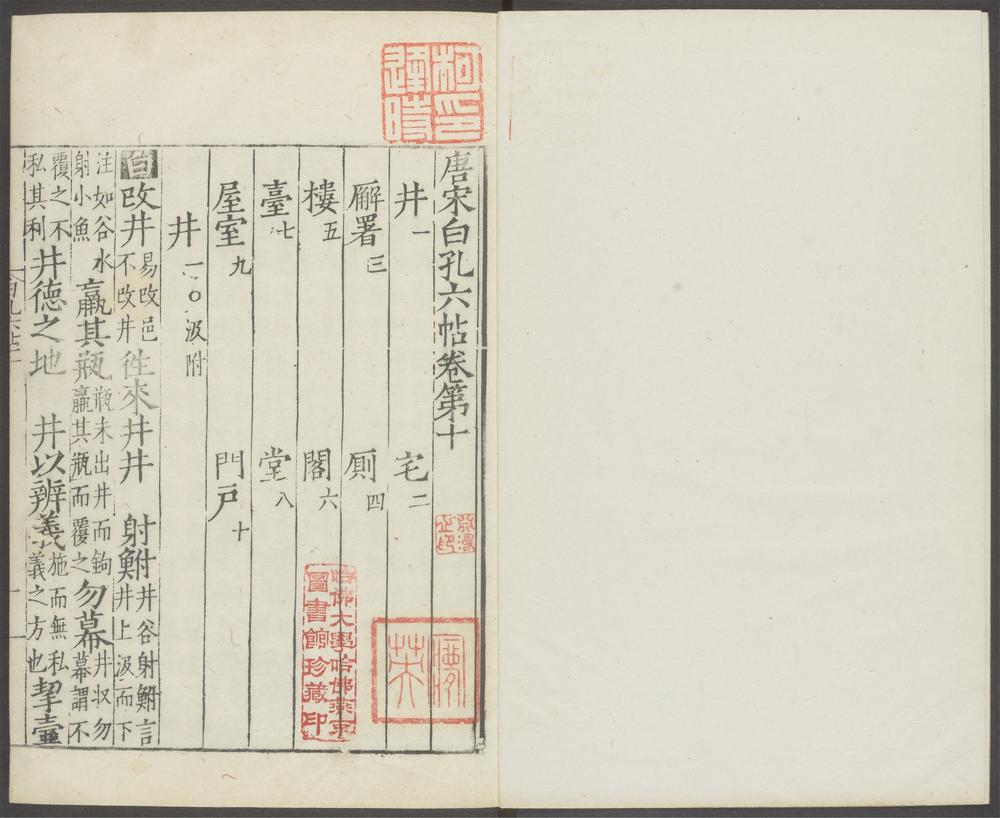 唐宋白孔六帖卷第十
井一 宅二
廨署三 厠四
樓五 閣六
臺七 堂八
屋室九 門戶十
井一〇汲附
白改井易改邑不改井往來井井 射鮒井谷射鮒言井上汲而下
注如谷水射小魚羸其瓶瓶未出井而鉤羸其瓶而覆之勿幕井収勿幕謂不
覆之不私其利井德之地 井以辨義施而無私義之方也挈壷
哈佛大學哈佛燕京
圖書館珍藏印